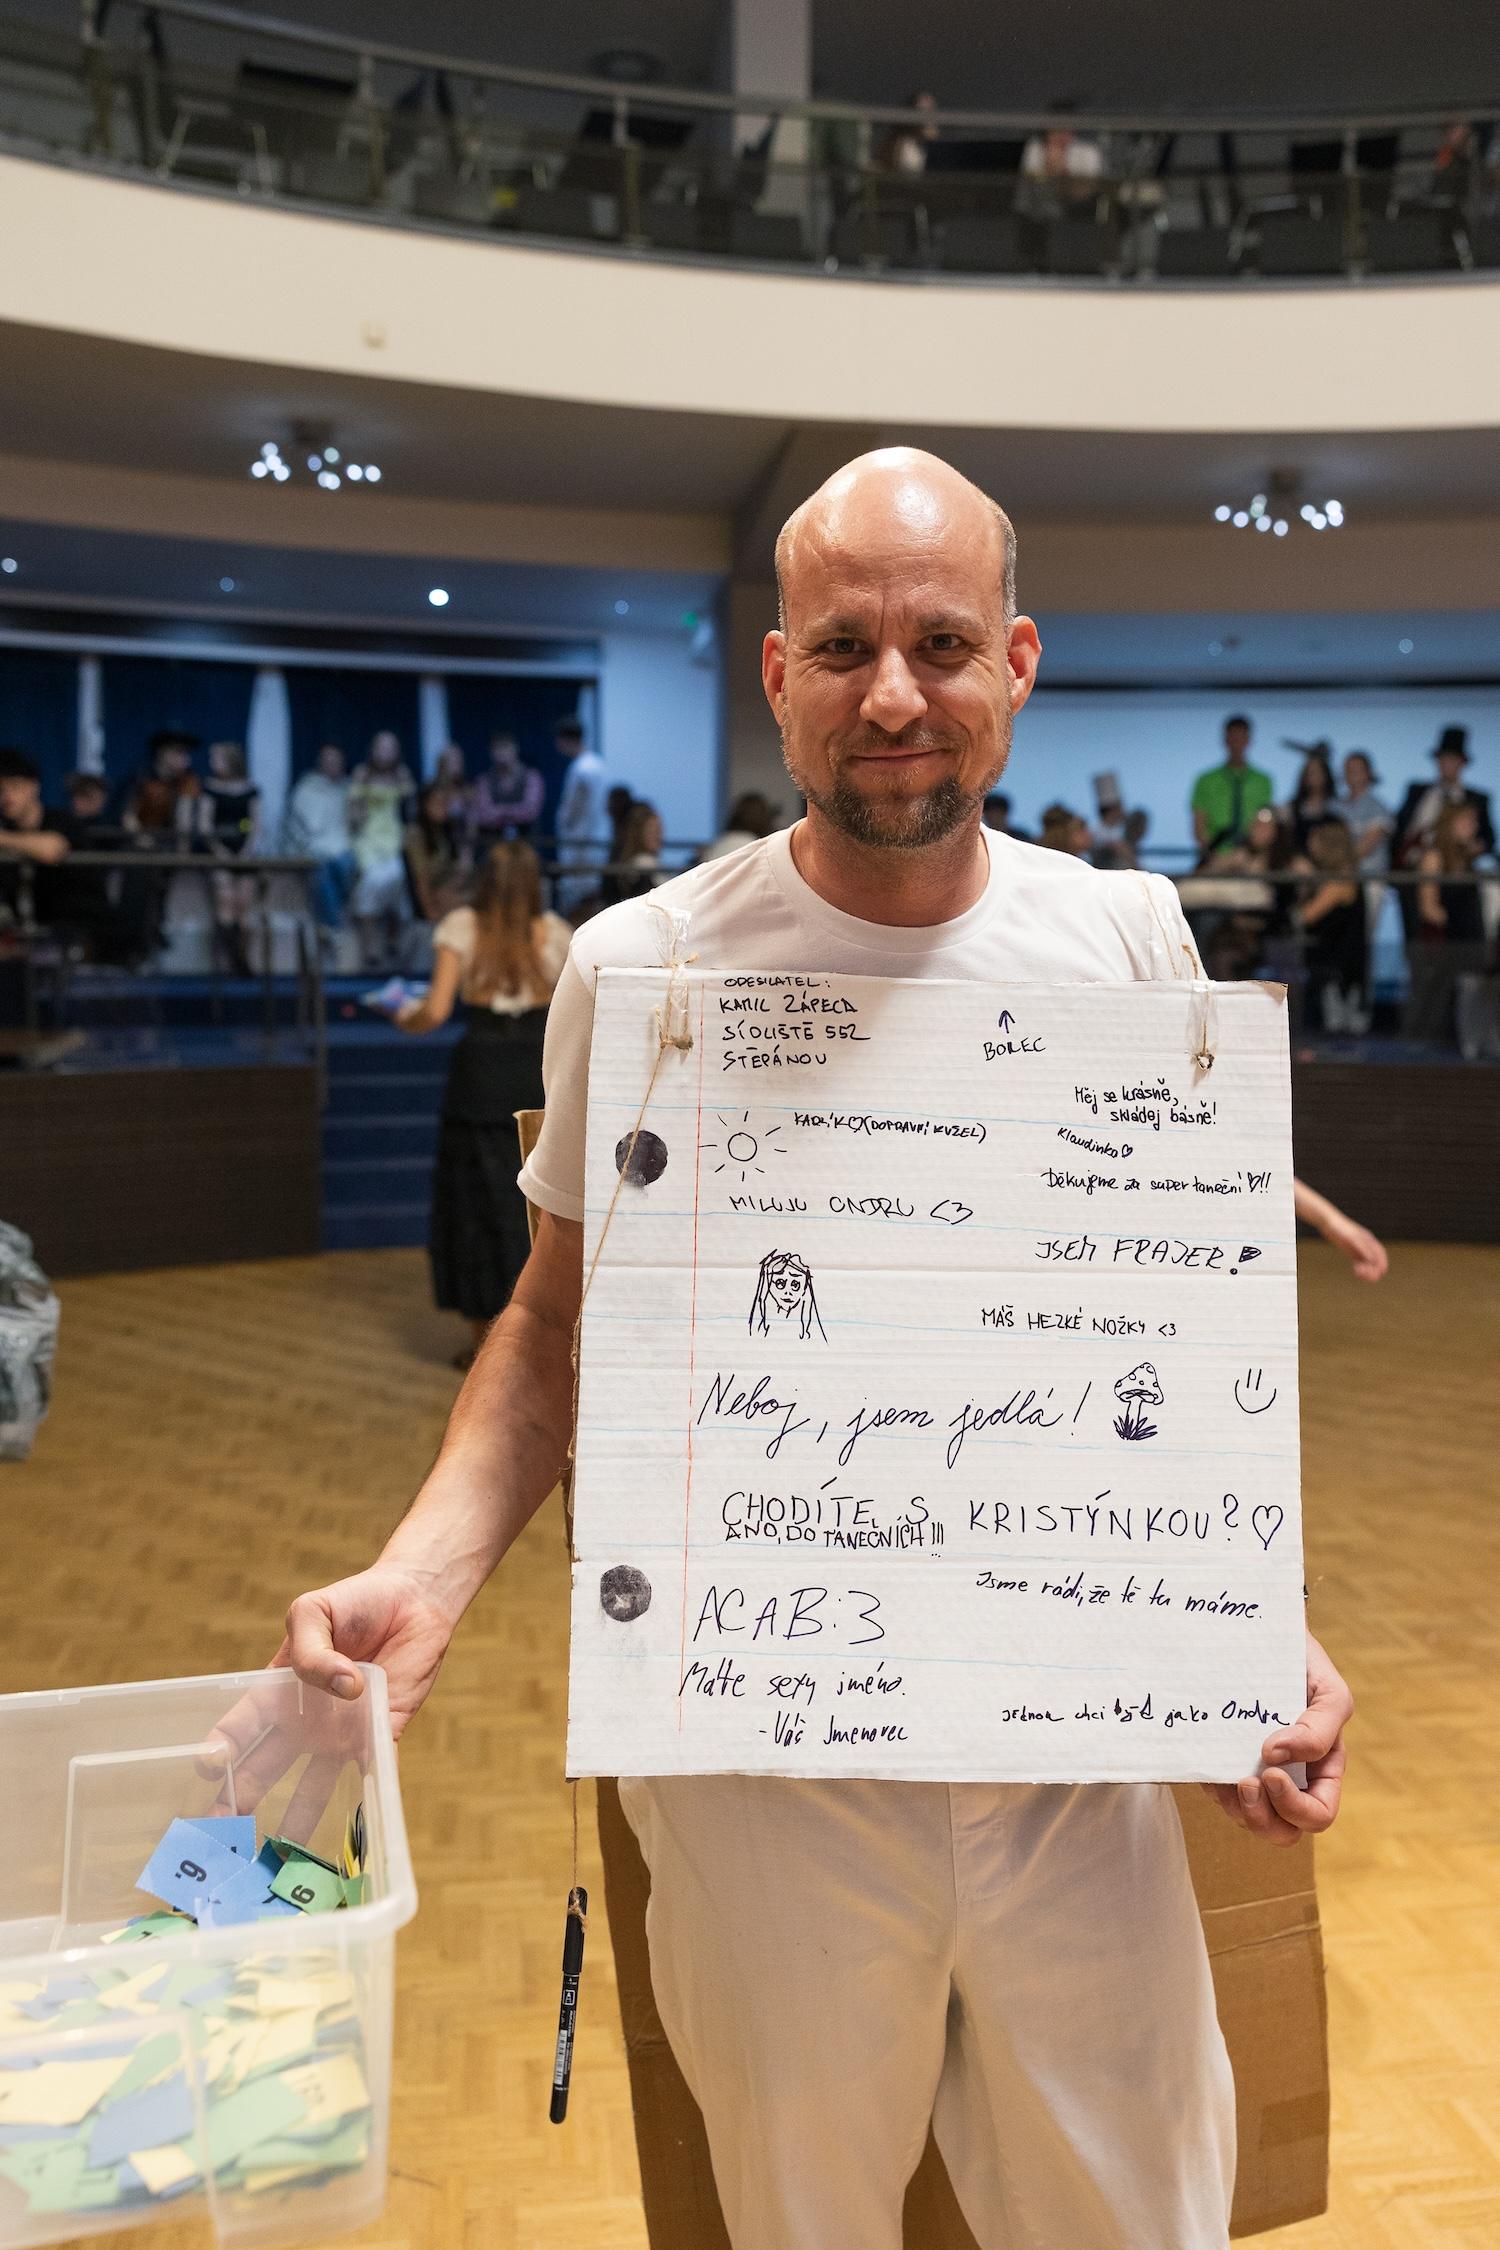 ODESILATEL:
KAMIL ZÁPECA
SÍDLIŠTĚ 552
ŠTĚPÁNOV
↑
BOREC
Měj se krásně,
skládej básně!
Klaudinka♡
KARLÍK♡(DOPRAVNÍ KUŽEL)
Děkujeme za super taneční♡!!
MILUJU ONDRU <3
JSEM FRAJER!
MÁŠ HEZKÉ NOŽKY <3
Neboj, jsem jedlá!
CHODÍTE S KRISTÝNKOU?♡
ANO, DO TANEČNÍCH!!!
Jsme rádi, že tě tu máme.
ACAB:3
Máte sexy jméno.
-Váš Jmenovec
jednou chci být jako Ondra
9
9